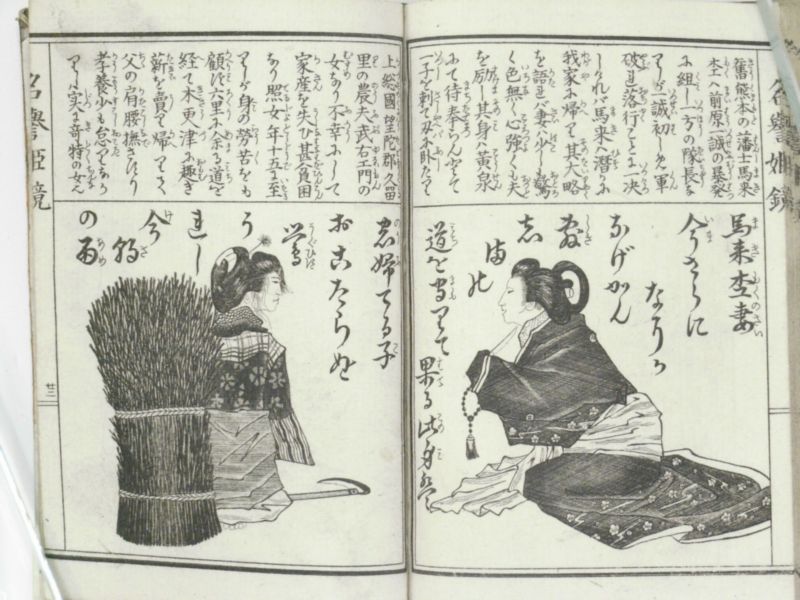 名譽姫鏡
舊熊本の藩士馬来
杢ハ前原一誠の暴発
に組し一方の隊長な
りしが一誠初しめ軍
破れ落行ことに一决
しけれバ馬来ハ潜かに
我家に帰て其大略
を語れバ妻ハ少しも驚
く色無く心強くも夫
を励し其身ハ黄泉
にて待奉らんとて
一子を刺て刃に臥たり
馬来杢妻
今さらに
なにか
なげかん
敷
志
満
の
道を守りて
果る此身
上総國望陀郡久留
里の農夫武右エ門の
女なり不幸にして
家産を失ひ甚貧困
なり照女年十五に至
りしが身の労苦をも
顧ず六里に余る道を
経て木更津に趣き
薪を賣て帰りよく
父の肩腰撫さすり
孝養少も怠りなか
りしハ実に奇特の女
婦てる子
おこたらぬ
鶯
う
れし
今
朝
の雨
名譽姫鏡
廿二